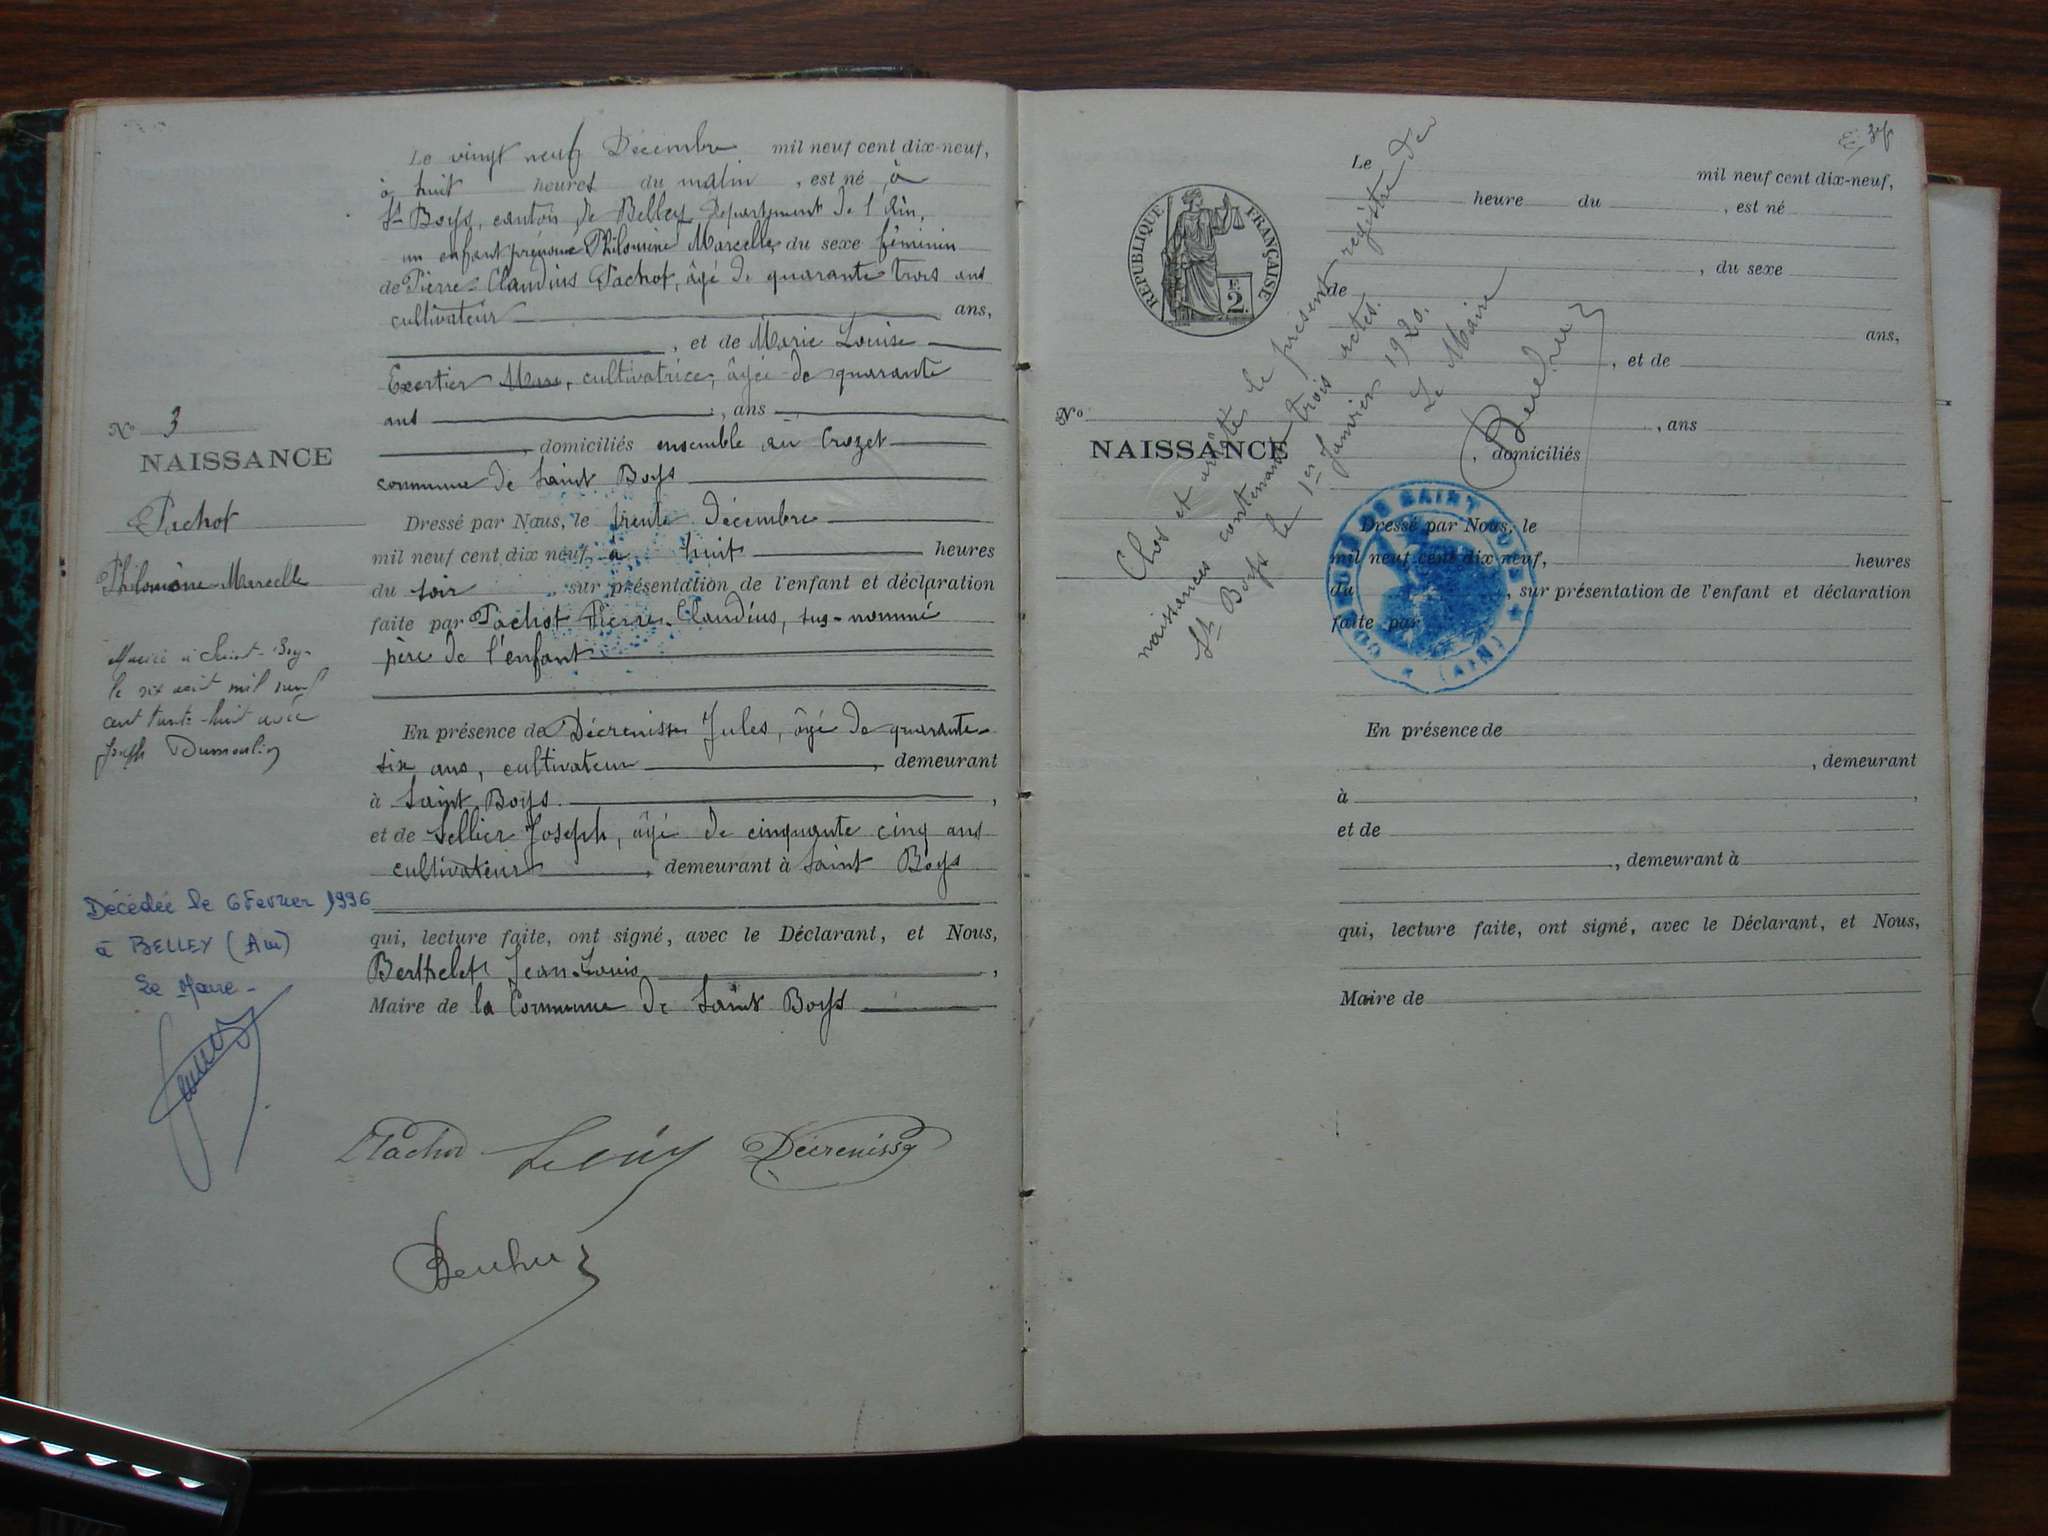 Le vingt neuf Décembre mil neuf cent dix-neuf,
à huit heures du matin, est né à
St Boys, canton de Belley Département de l'Ain,
un enfant prénomé Philomène Marcelle, du sexe féminin
de Pierre-Claudius Pachot, âgé de quarante trois ans
cultivateur ans,
, et de Marie Louise
Exertier, cultivatrice, âgée de quarante
ans , ans
, domiciliés ensemble au Crozet
commune de Saint Boys
Dressé par Nous, le trente décembre
mil neuf cent dix neuf, à huit heures
du soir, sur présentation de l'enfant et déclaration
faite par Pachot Pierre-Claudius, sus-nommé
père de l'enfant
En présence de Décrenisse Jules, âgé de quarante-
six ans, cultivateur, demeurant
à Saint Boys,
et de Sellier Joseph, âgé de cinquante cinq ans
cultivateur, demeurant à Saint Boys
qui, lecture faite, ont signé, avec le Déclarant, et Nous,
Berthelet Jean-Louis,
Maire de la Commune de Saint Boys
Pachot Décrenisse
N° 3
NAISSANCE
Pachot
Philomène-Marcelle
Mariée à Saint-Boys
le six août mil neuf
cent trente-huit avec
Joseph Dumoulin
Décédée le 6 Février 1996
à BELLEY (Ain)
Le Maire -
RÉPUBLIQUE FRANÇAISE
2F
N°
NAISSANCE
Clos et arrêté le présent registre de
naissances contenant trois actes.
St Boys le 1er Janvier 1920.
Le Maire
COMMUNE DE SAINT BOYS (AIN)
Le mil neuf cent dix-neuf,
heure du , est né
, du sexe
de
ans,
, et de
, ans
, domiciliés
Dressé par Nous, le
mil neuf cent dix neuf, heures
du , sur présentation de l'enfant et déclaration
faite par
En présence de
, demeurant
à ,
et de
, demeurant à
qui, lecture faite, ont signé, avec le Déclarant, et Nous,
Maire de